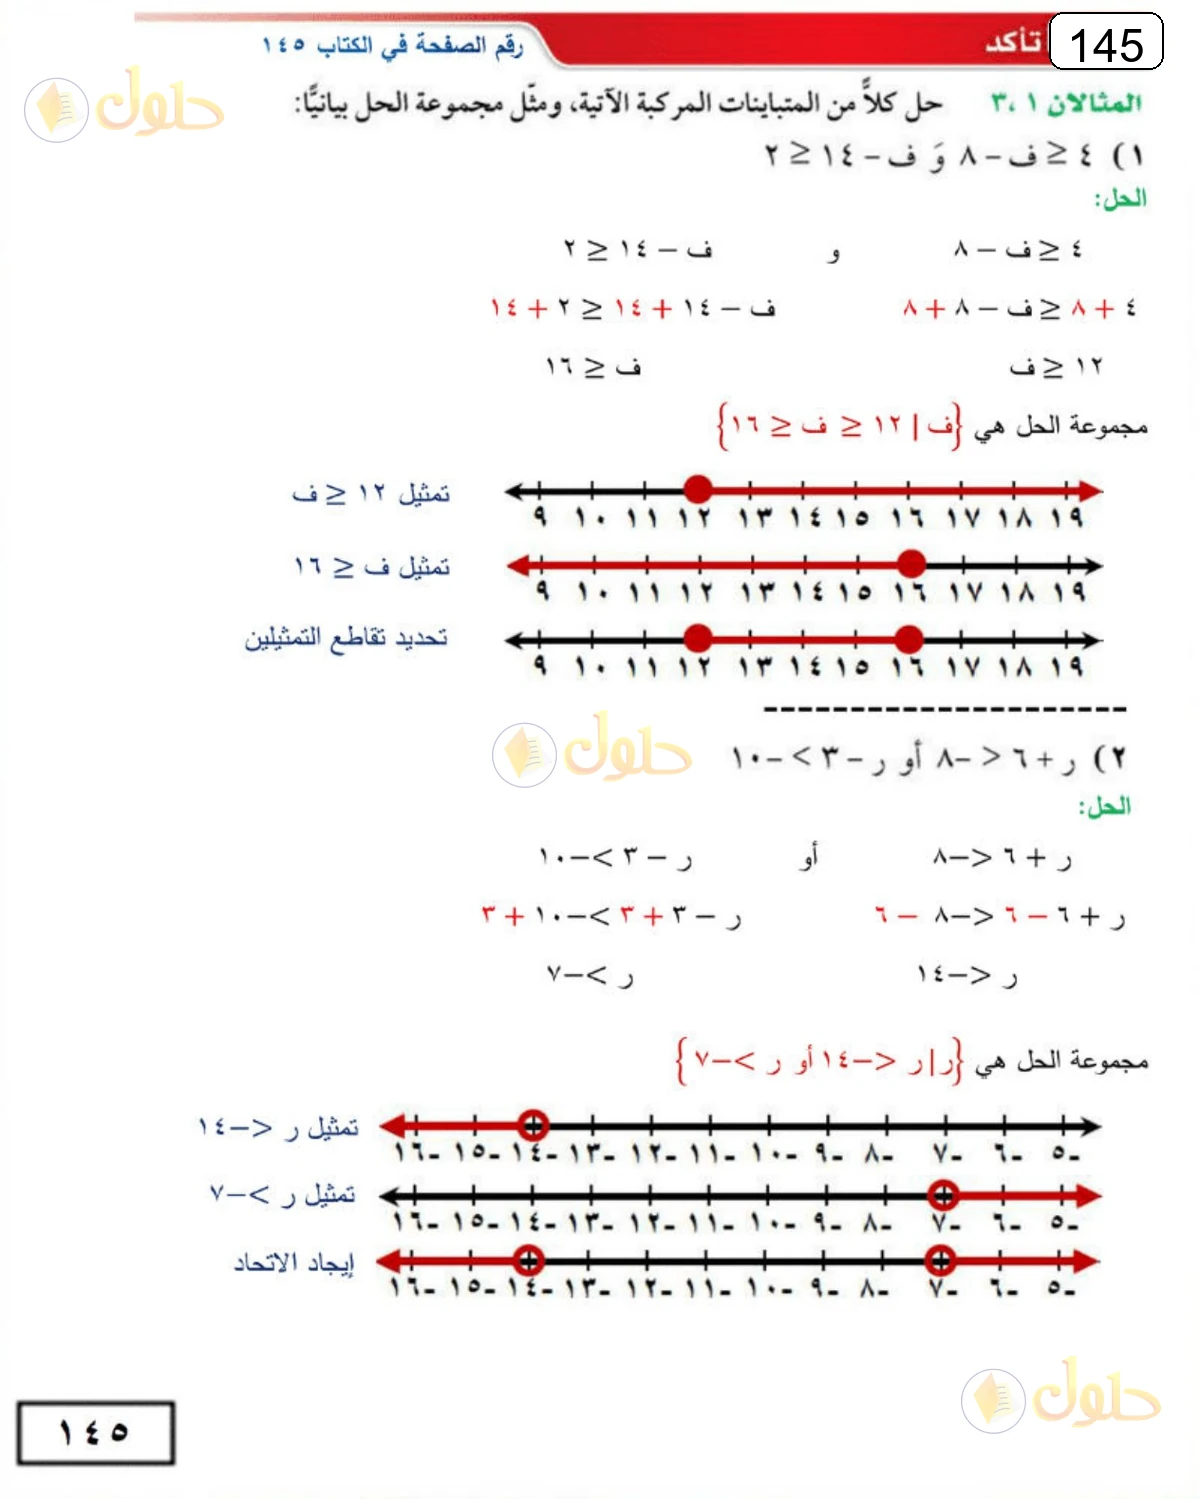 145
تأكد
رقم الصفحة في الكتاب ١٤٥
المثالان ١ ،٣ حل كلاًّ من المتباينات المركبة الآتية، ومثّل مجموعة الحل بيانيًّا:
١) ٤ ≤ ف − ٨ وَ ف − ١٤ ≤ ٢
الحل:
٤ ≤ ف − ٨ و ف − ١٤ ≤ ٢
٤ + ٨ ≤ ف − ٨ + ٨ ف − ١٤ + ١٤ ≤ ٢ + ١٤
١٢ ≤ ف ف ≤ ١٦
مجموعة الحل هي {ف | ١٢ ≤ ف ≤ ١٦}
تمثيل ١٢ ≤ ف
٩ ١٠ ١١ ١٢ ١٣ ١٤ ١٥ ١٦ ١٧ ١٨ ١٩
تمثيل ف ≤ ١٦
٩ ١٠ ١١ ١٢ ١٣ ١٤ ١٥ ١٦ ١٧ ١٨ ١٩
تحديد تقاطع التمثيلين
٩ ١٠ ١١ ١٢ ١٣ ١٤ ١٥ ١٦ ١٧ ١٨ ١٩
حلول
٢) ر + ٦ < −٨ أو ر − ٣ > −١٠
الحل:
ر + ٦ < −٨ أو ر − ٣ > −١٠
ر + ٦ − ٦ < −٨ − ٦ ر − ٣ + ٣ > −١٠ + ٣
ر < −١٤ ر > −٧
مجموعة الحل هي {ر | ر < −١٤ أو ر > −٧}
تمثيل ر < −١٤
-١٦ -١٥ -١٤ -١٣ -١٢ -١١ -١٠ -٩ -٨ -٧ -٦ -٥
تمثيل ر > −٧
-١٦ -١٥ -١٤ -١٣ -١٢ -١١ -١٠ -٩ -٨ -٧ -٦ -٥
إيجاد الاتحاد
-١٦ -١٥ -١٤ -١٣ -١٢ -١١ -١٠ -٩ -٨ -٧ -٦ -٥
حلول
١٤٥
حلول